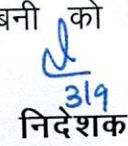 बनी को
3/9
निदेशक